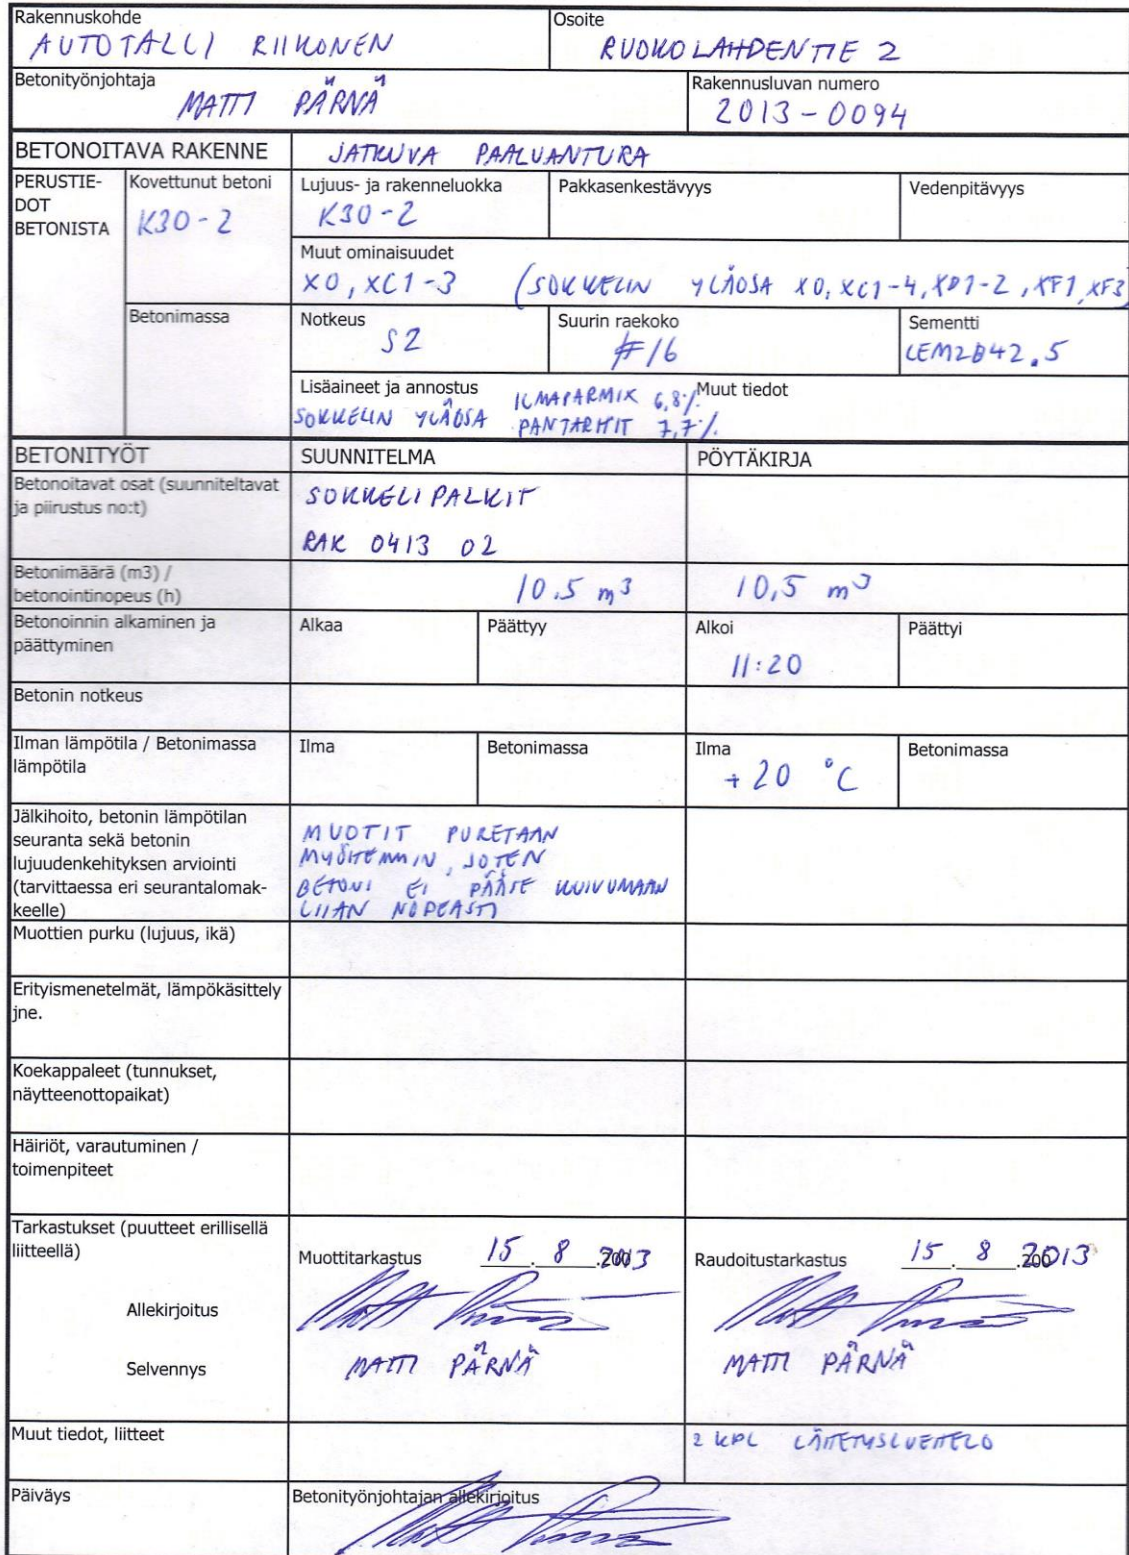 Rakennuskohde
AUTOTALLI RIIKONEN
Osoite
RUOKOLAHDENTIE 2
Betonityönjohtaja
MATTI PÄRNÄ
Rakennusluvan numero
2013-0094
BETONOITAVA RAKENNE
JATKUVA PAALUANTURA
PERUSTIE-
DOT
BETONISTA
Kovettunut betoni
K30-2
Lujuus- ja rakenneluokka
K30-2
Pakkasenkestävyys
Vedenpitävyys
Muut ominaisuudet
X0, XC1-3 (SOKKELIN YLÄOSA X0, XC1-4, XD1-2, XF1, XF3)
Betonimassa
Notkeus
S2
Suurin raekoko
#16
Sementti
CEM2B42.5
Lisäaineet ja annostus
ILMAPARMIX 6,8%
SOKKELIN YLÄOSA PANTARHIT 7,7%
Muut tiedot
BETONITYÖT
SUUNNITELMA
PÖYTÄKIRJA
Betonoitavat osat (suunniteltavat
ja piirustus no:t)
SOKKELIPALKIT
RAK 0413 02
Betonimäärä (m3) /
betonointinopeus (h)
10.5 m3
10,5 m3
Betonoinnin alkaminen ja
päättyminen
Alkaa
Päättyy
Alkoi
11:20
Päättyi
Betonin notkeus
Ilman lämpötila / Betonimassa
lämpötila
Ilma
Betonimassa
Ilma
+20 °C
Betonimassa
Jälkihoito, betonin lämpötilan
seuranta sekä betonin
lujuudenkehityksen arviointi
(tarvittaessa eri seurantalomak-
keelle)
MUOTIT PURETAAN
MYÖHEMMIN, JOTEN
BETONI EI PÄÄSE KUIVUMAAN
LIIAN NOPEASTI
Muottien purku (lujuus, ikä)
Erityismenetelmät, lämpökäsittely
jne.
Koekappaleet (tunnukset,
näytteenottopaikat)
Häiriöt, varautuminen /
toimenpiteet
Tarkastukset (puutteet erillisellä
liitteellä)
Muottitarkastus 15.8.2013
Raudoitustarkastus 15.8.2013
Allekirjoitus
Selvennys
MATTI PÄRNÄ
MATTI PÄRNÄ
Muut tiedot, liitteet
2 KPL LÄHETYSLUETTELO
Päiväys
Betonityönjohtajan allekirjoitus